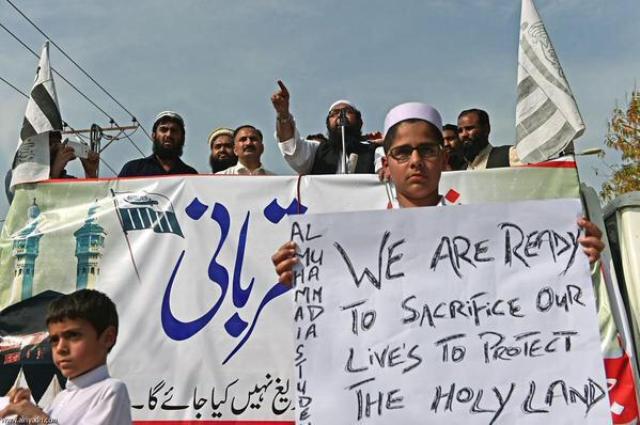 قربانی
دریغ نہیں کیا جائے گا۔
ALMUHAMMADIA STUDE
WE ARE READY
TO SACRIFICE OUR
LIVE'S TO PROTECT
THE HOLY LAND
www.alriyadh.com